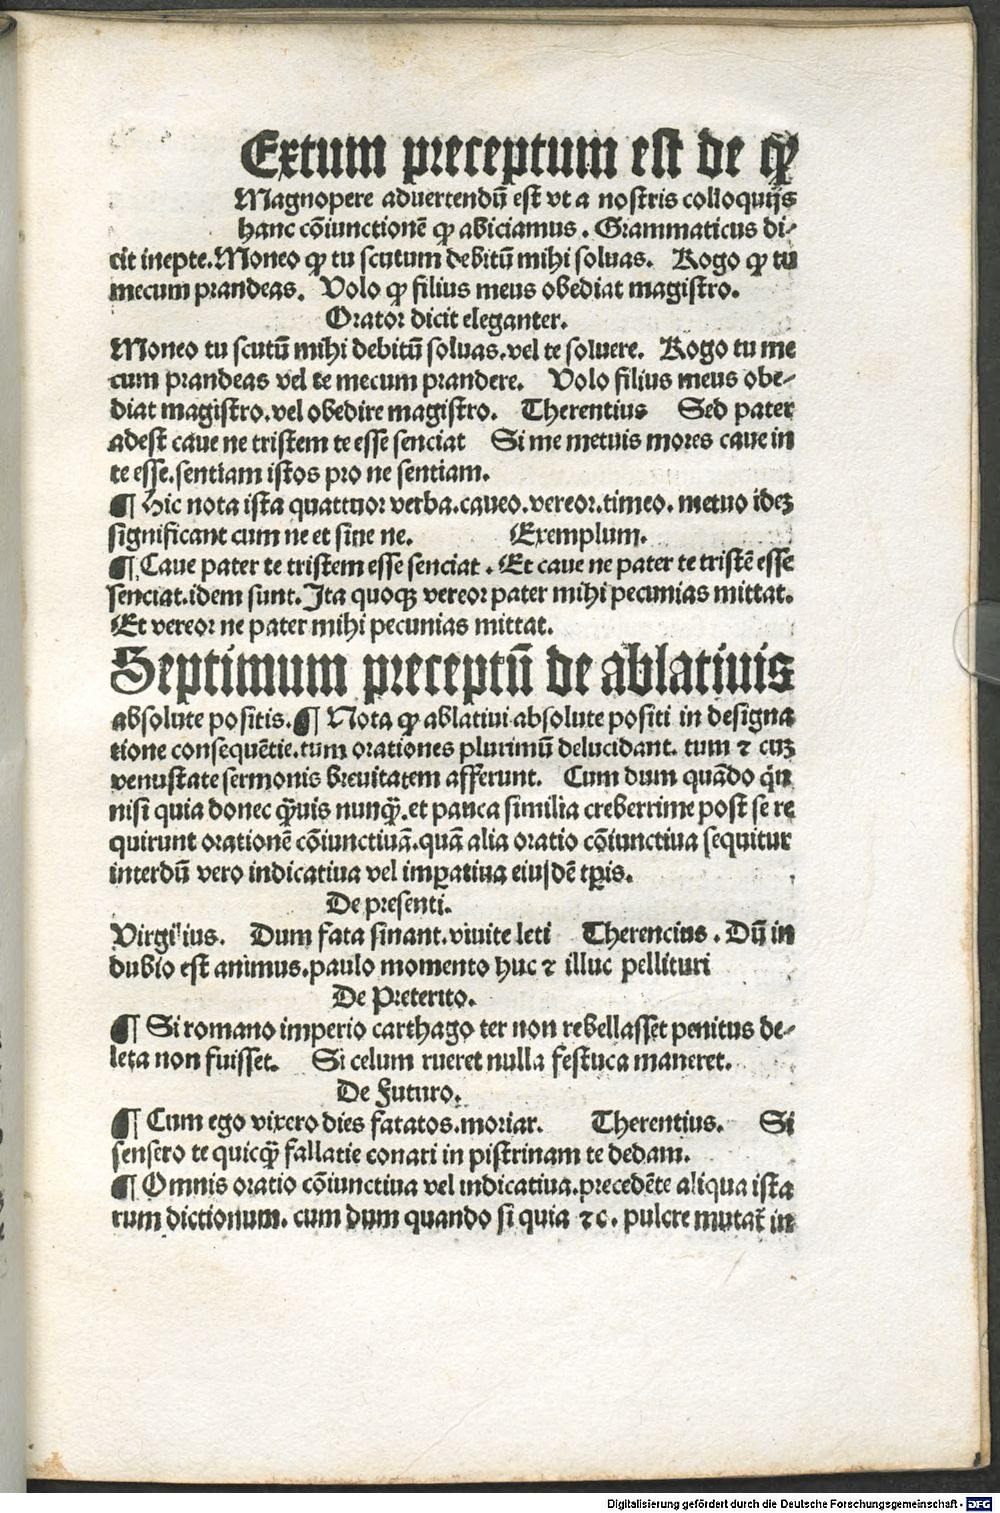 Extum preceptum est de ꝙ
Magnopere aduertendū est vt a nostris colloquijs
hanc cōiunctionē ꝙ abiciamus. Grammaticus di⸗
cit inepte. Moneo ꝙ tu scutum debitū mihi soluas. Rogo ꝙ tu
mecum prandeas. Volo ꝙ filius meus obediat magistro.
Orator dicit eleganter.
Moneo tu scutū mihi debitū soluas. vel te soluere. Rogo tu me
cum prandeas vel te mecum prandere. Volo filius meus obe⸗
diat magistro. vel obedire magistro. Therentius Sed pater
adest caue ne tristem te esse senciat Si me metuis mores caue in
te esse. sentiam istos pro ne sentiam.
¶ Hic nota ista quattuor verba. caueo. vereor. timeo. metuo idez
significant cum ne et sine ne. Exemplum.
¶ Caue pater te tristem esse senciat. Et caue ne pater te tristē esse
senciat. idem sunt. Ita quoqꝫ vereor pater mihi pecunias mittat.
Et vereor ne pater mihi pecunias mittat.
Septimum preceptū de ablatiuis
absolute positis. ¶ Nota ꝙ ablatiui absolute positi in designa
tione consequētie. tum orationes plurimū delucidant. tum ⁊ cuz
venustate sermonis breuitatem afferunt. Cum dum quādo qn̄
nisi quia donec qꝫuis nunqꝫ. et pauca similia creberrime post se re
quirunt orationē cōiunctiuā. quā alia oratio cōiunctiua sequitur
interdū vero indicatiua vel imꝑatiua eiusdē tꝑis.
De presenti.
Virgilius. Dum fata sinant. viuite leti Therencius. Dū in
dubio est animus. paulo momento huc ⁊ illuc pellituri
De Preterito.
¶ Si romano imperio carthago ter non rebellasset penitus de⸗
leta non fuisset. Si celum rueret nulla festuca maneret.
De Futuro.
¶ Cum ego vixero dies fatatos. moriar. Therentius. Si
sensero te quicqꝫ fallatie conari in pistrinam te dedam.
¶ Omnis oratio cōiunctiua vel indicatiua. precedēte aliqua ista
rum dictionum. cum dum quando si quia ⁊c. pulcre mutat̄ in
Digitalisierung gefördert durch die Deutsche Forschungsgemeinschaft - DFG